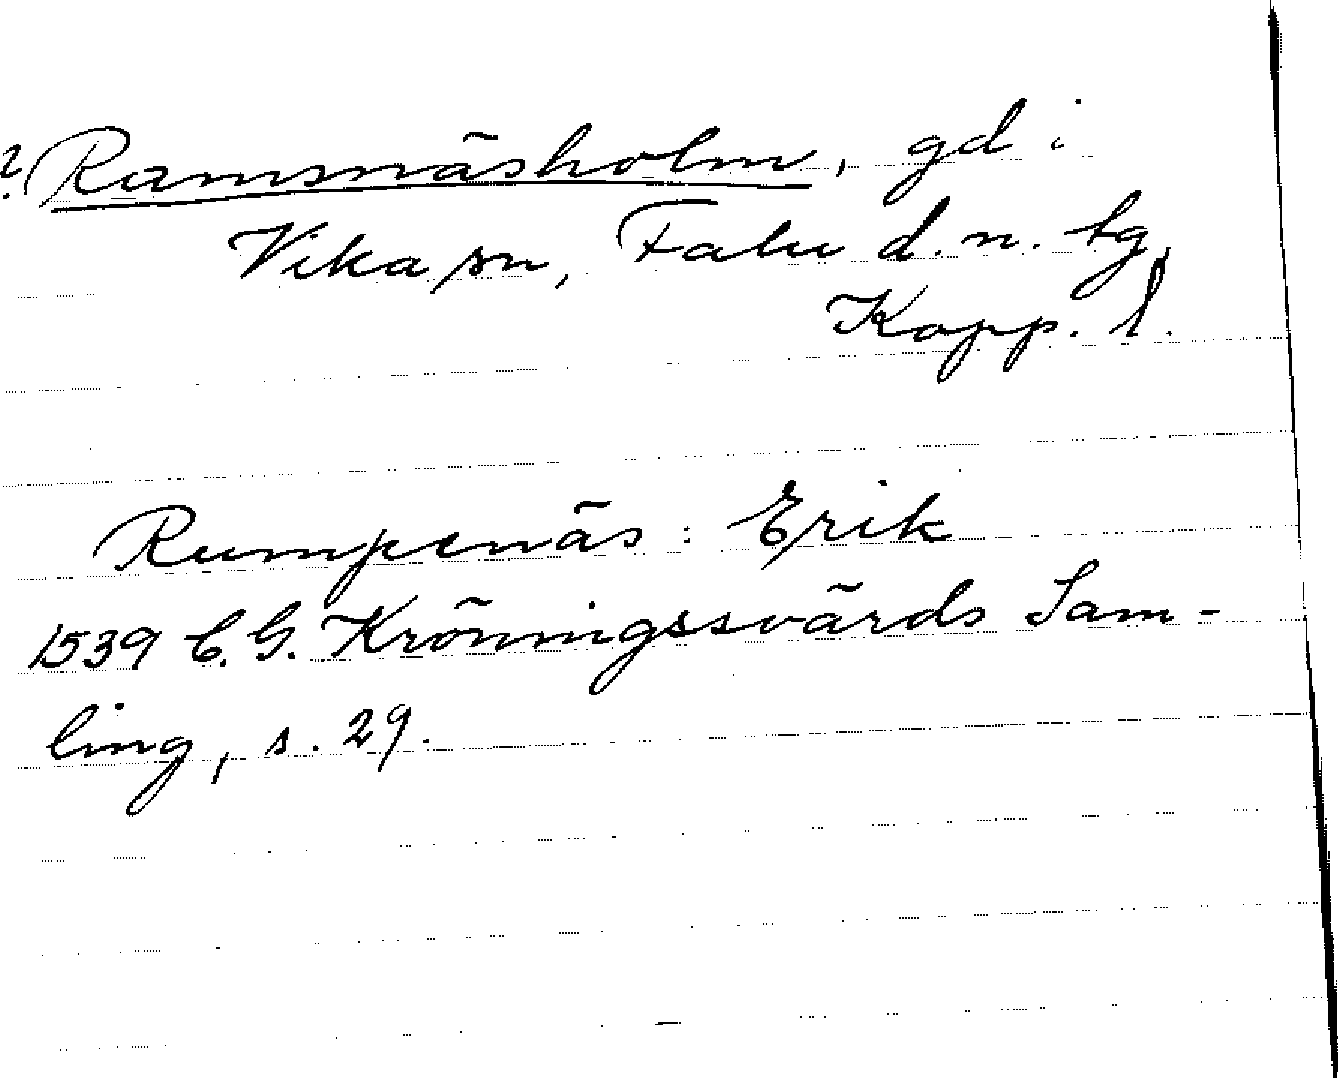 ? Ramsnäsholm, gd i
Vika sn, Falu d. n. tg,
Kopp. l.
Rumpenäs: Erik
1539 C. G. Kröningssvärds Sam-
ling, s. 29.